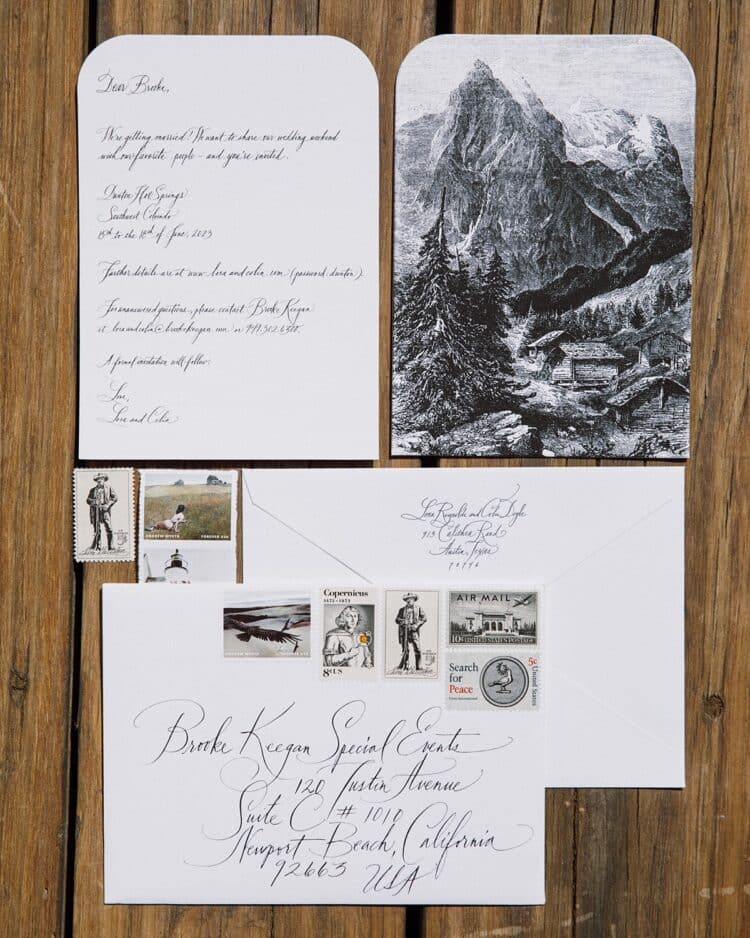 Dear Brooke,
We're getting married! We want to share our wedding weekend
with our favorite people - and you're invited.
Dunton Hot Springs
Southwest Colorado
15th to the 18th of June, 2023
Further details are at www.loraandcolin.com (password: dunton)
For unanswered questions, please contact Brooke Keegan
at loraandcolin@brookekeegan.com or 949.302.6300.
A formal invitation will follow.
Love,
Lora and Colin
ANDREW WYETH
FOREVER USA
Lora Reynolds and Colin
913
Road
Austin, Texas
Copernicus
1473-1973
8c US
AIR MAIL
10¢ UNITED STATES POSTAGE
Search
for
Peace
Lions International
5c
United States
ANDREW WYETH
FOREVER USA
Brooke Keegan Special Events
120 Tustin Avenue
Suite C #1010
Newport Beach, California
92663 USA